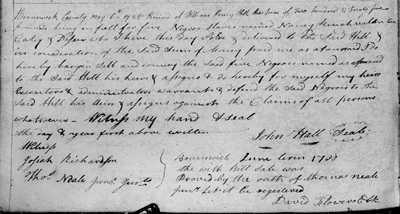 Brunswick County May 6th 1785 Received of William Henry Hill the sum of Two hundred & twenty five
pounds in full for five Negroe Slaves named Nancy
& I have this day Sold & delivered to the Said Hill &
in Consideration of the Said Sum of money paid me as aforesaid I do
hereby bargain Sell and convey the Said five Negroes named as aforesaid
to the Said Hill his heirs & assigns & do hereby for myself my heirs
Executors & administrators warrant & defend the Said Negroes to the
Said Hill his heirs & assigns against the Claims of all persons
whatsoever - Witness my hand & Seal
the day & year first above written
John Hall Seal
Witness
Josiah Richardson
Thos. Neale junr.
Brunswick June term 1785
the with Bill Sale was
Proved by the oath of thomas neale
junr. Let it be registered
David Flowers Clk